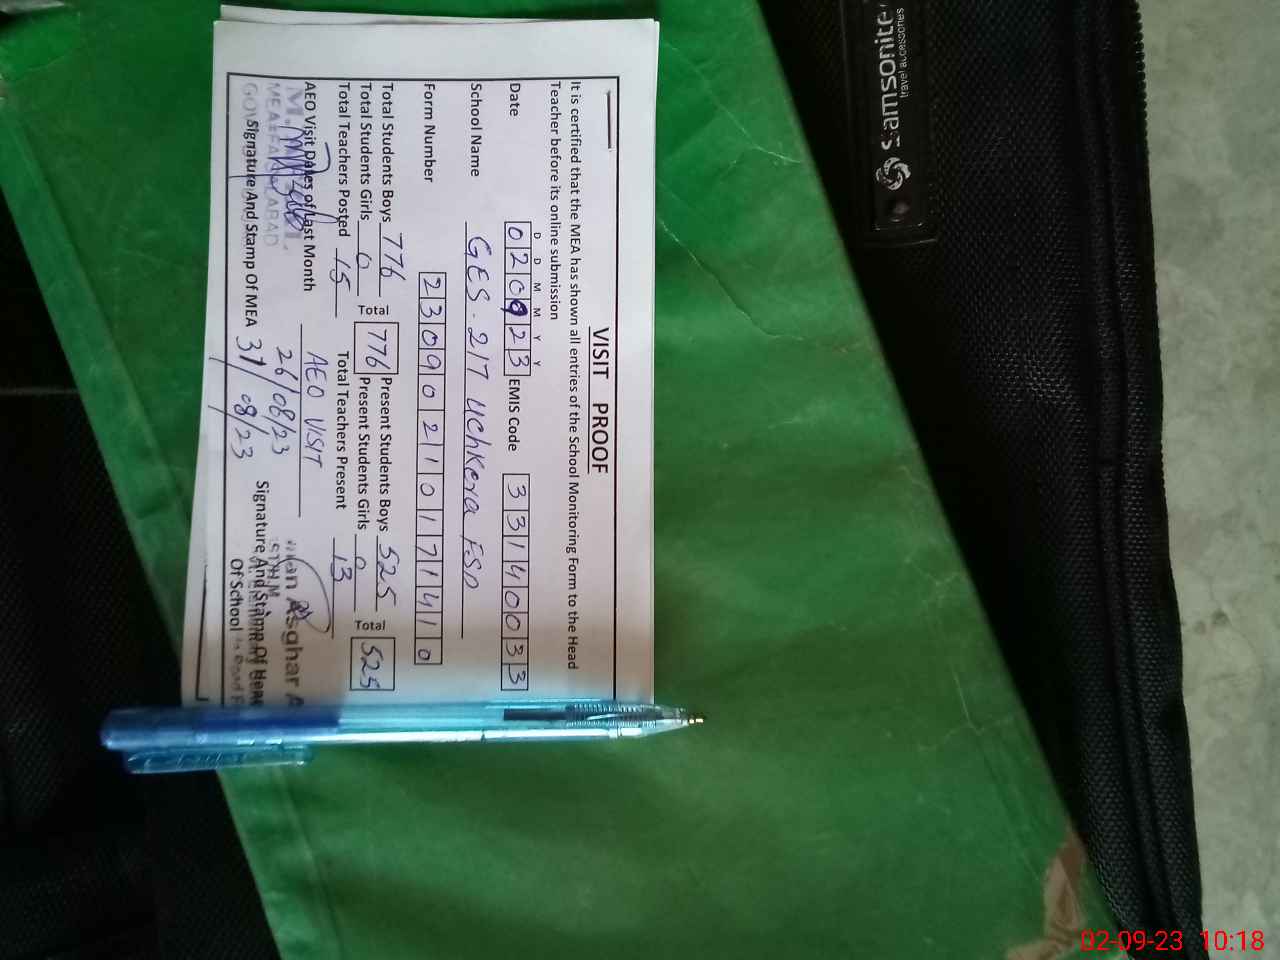 VISIT PROOF
It is certified that the MEA has shown all entries of the School Monitoring Form to the Head
Teacher before its online submission
D D M M Y Y
Date 020923 EMIS Code 33140033
School Name GES. 217 Uchkera FSD
Form Number 2309021017140
Total Students Boys 776 Total 776 Present Students Boys 525 Total 525
Total Students Girls 0 Present Students Girls 0
Total Teachers Posted 15 Total Teachers Present 13
AEO Visit Dates of Last Month AEO VISIT
26/08/23
31/08/23
MEA FAISALABAD
Signature And Stamp Of MEA
Asghar
Signature And Stamp Of Head
Of School
Samsonite
Travel accessories
02-09-23 10:18